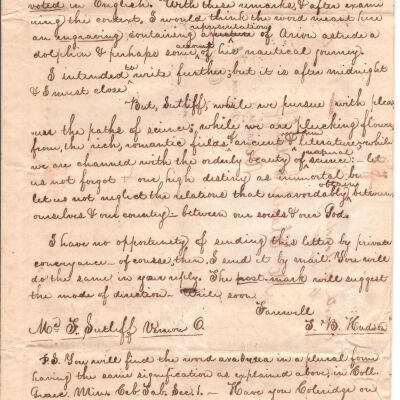 voted in English. With these remarks, & after exami
ning the context, I would think the word meant here
representation
an engraving containing a picture of Arion astride a
dolphin & perhaps some account of his nautical journey.
I intended to write further; but it is after midnight
& I must close
But, Sutliff, while we pursue with pleas
ure the paths of science, while we are plucking flowers
from the rich, romantic fields of ancient & literature; while
we are charmed with the orderly beauty of natural science; – let
us not forget our high destiny as immortal be
let us not neglect the relations that unavoidably obtain between
ourselves & our country – between our souls & our God.
I have no opportunity of sending this letter by private
conveyance – of course, then, I send it by mail. You will
do the same in your reply. The post-mark will suggest
the mode of direction – Write soon
Farewell
Mr. F. Sutliff Vernon O. T. B. Hudson
P.S. You will find the word in a plural form
having the same signification as explained above, in Coll.
Graec. Min. Ceb. Tab. Sec. 1. – Have you Coleridge on